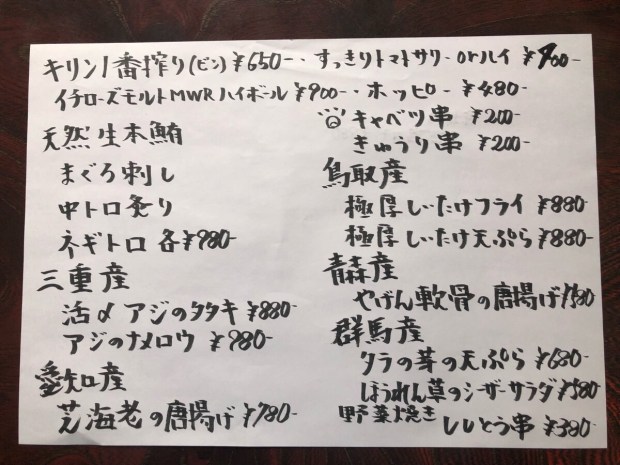 キリン1番搾り(ビン)¥650-・すっきりトマトサワーorハイ ¥900-
イチローズモルトMWRハイボール ¥900-・ホッピー ¥480-
天然生本鮪
まぐろ刺し
中トロ炙り
ネギトロ 各¥980-
三重産
活〆 アジのタタキ ¥880-
アジのナメロウ ¥980-
愛知産
芝海老の唐揚げ ¥780-
キャベツ串 ¥200-
きゅうり串 ¥200-
鳥取産
極厚しいたけフライ ¥880-
極厚しいたけ天ぷら ¥880-
青森産
やげん軟骨の唐揚げ
群馬産
タラの芽の天ぷら ¥680-
ほうれん草のシーザーサラダ ¥580-
野菜焼き ししとう串 ¥380-